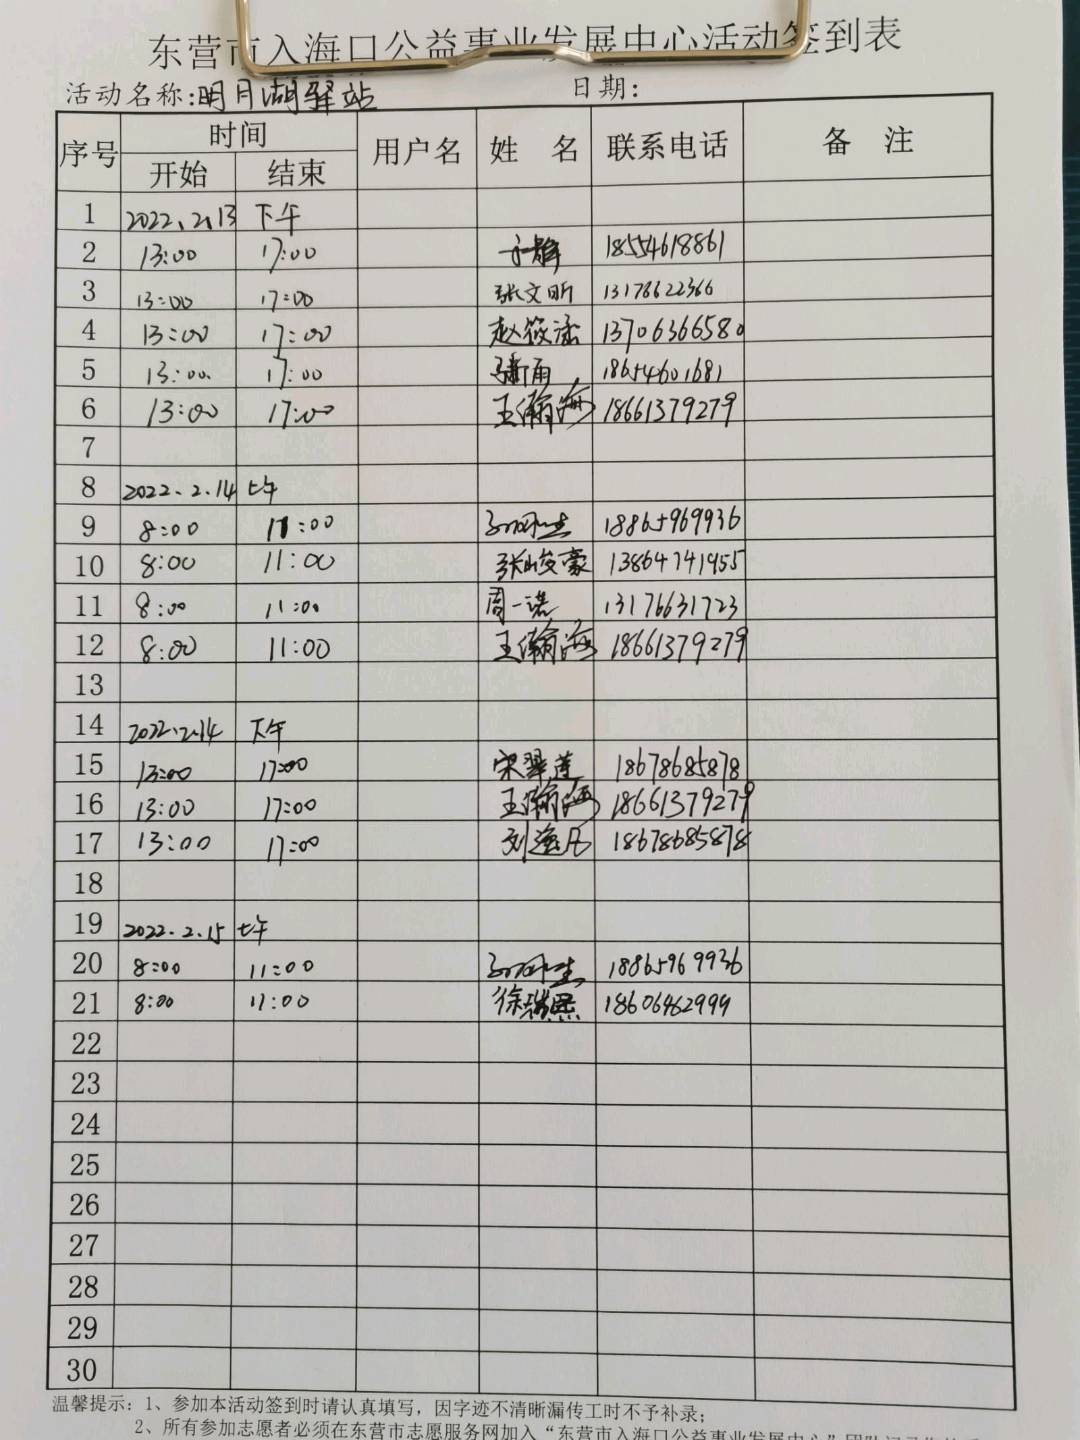 东营市入海口公益事业发展中心活动签到表
活动名称:明月湖驿站 日期:
序号 时间 用户名 姓 名 联系电话 备 注
开始 结束
1 2022.2.13 下午
2 13:00 17:00 18554618861
3 13:00 17:00 张文昕 13176622366
4 13:00 17:00 赵筱涵 13706366580
5 13:00 17:00 18654601681
6 13:00 17:00 王瀚海 18661379279
7
8 2022.2.14 上午
9 8:00 11:00 18865969936
10 8:00 11:00 张峻豪 13864741955
11 8:00 11:00 周一诺 13176631723
12 8:00 11:00 王瀚海 18661379279
13
14 2022.2.14 下午
15 13:00 17:00 宋翠莲 18678685878
16 13:00 17:00 王瀚海 18661379279
17 13:00 17:00 刘逸凡 18678685878
18
19 2022.2.15 上午
20 8:00 11:00 18865969936
21 8:00 11:00 徐瑞熙 18606462999
22
23
24
25
26
27
28
29
30
温馨提示:1、参加本活动签到时请认真填写,因字迹不清晰漏传工时不予补录;
2、所有参加志愿者必须在东营市志愿服务网加入“东营市入海口公益事业发展中心”团队